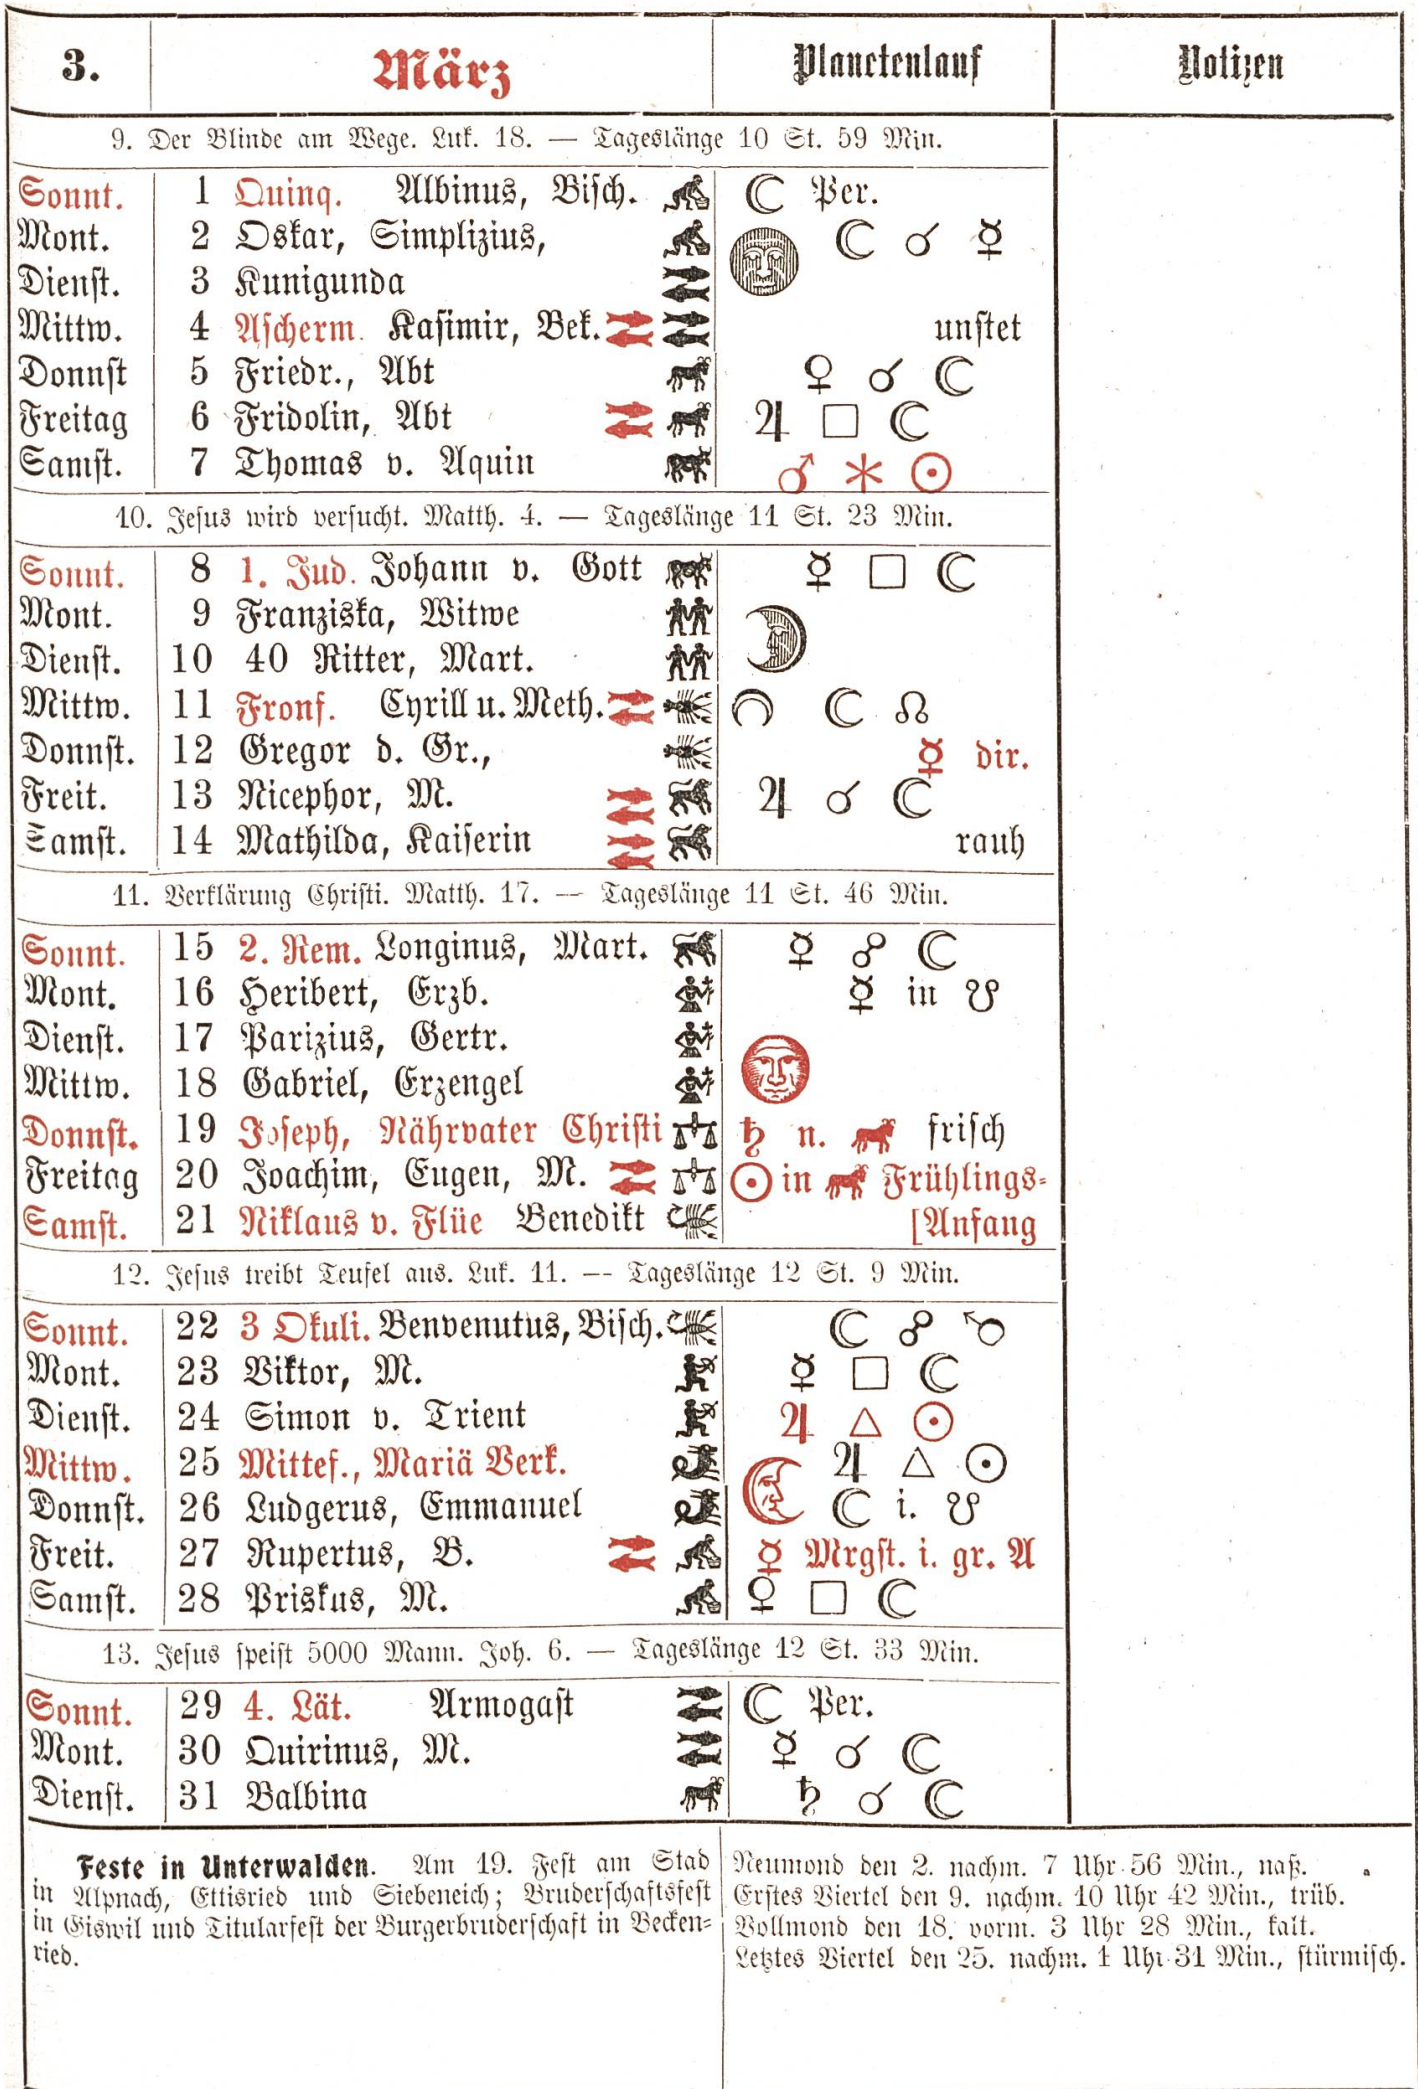 3. März Planetenlauf Notizen
9. Der Blinde am Wege. Luk. 18. — Tageslänge 10 St. 59 Min.
Sonnt. 1 Quinq. Albinus, Bisch. ☾ Per.
Mont. 2 Oskar, Simplizius, ☾ ☌ ☿
Dienst. 3 Kunigunda
Mittw. 4 Ascherm. Kasimir, Bek. unstet
Donnst 5 Friedr., Abt ♀ ☌ ☾
Freitag 6 Fridolin, Abt ♃ □ ☾
Samst. 7 Thomas v. Aquin ♂ ⚹ ☉
10. Jesus wird versucht. Matth. 4. — Tageslänge 11 St. 23 Min.
Sonnt. 8 1. Jud. Johann v. Gott ☿ □ ☾
Mont. 9 Franziska, Witwe
Dienst. 10 40 Ritter, Mart.
Mittw. 11 Fronf. Cyrill u. Meth. ☾ ☊
Donnst. 12 Gregor d. Gr., ☿ dir.
Freit. 13 Nicephor, M. ♃ ☌ ☾
Samst. 14 Mathilda, Kaiserin rauh
11. Verklärung Christi. Matth. 17. — Tageslänge 11 St. 46 Min.
Sonnt. 15 2. Rem. Longinus, Mart. ☿ ☍ ☾
Mont. 16 Heribert, Erzb. ☿ in ☋
Dienst. 17 Parizius, Gertr.
Mittw. 18 Gabriel, Erzengel
Donnst. 19 Joseph, Nährvater Christi ♄ n. frisch
Freitag 20 Joachim, Eugen, M. ☉ in Frühlings-
Samst. 21 Niklaus v. Flüe Benedikt [Anfang
12. Jesus treibt Teufel aus. Luk. 11. — Tageslänge 12 St. 9 Min.
Sonnt. 22 3 Okuli. Benvenutus, Bisch. ☾ ☍ ♂
Mont. 23 Viktor, M. ☿ □ ☾
Dienst. 24 Simon v. Trient ♃ △ ☉
Mittw. 25 Mittef., Mariä Verk. ♃ △ ☉
Donnst. 26 Ludgerus, Emmanuel ☾ i. ☋
Freit. 27 Rupertus, B. ☿ Mrgst. i. gr. A
Samst. 28 Priskus, M. ♀ □ ☾
13. Jesus speist 5000 Mann. Joh. 6. — Tageslänge 12 St. 33 Min.
Sonnt. 29 4. Lät. Armogast ☾ Per.
Mont. 30 Quirinus, M. ☿ ☌ ☾
Dienst. 31 Balbina ♄ ☌ ☾
Feste in Unterwalden. Am 19. Fest am Stad
in Alpnach, Ettisried und Siebeneich; Bruderschaftsfest
in Giswil und Titularfest der Burgerbruderschaft in Becken-
ried.
Neumond den 2. nachm. 7 Uhr 56 Min., naß.
Erstes Viertel den 9. nachm. 10 Uhr 42 Min., trüb.
Vollmond den 18. vorm. 3 Uhr 28 Min., kalt.
Letztes Viertel den 25. nachm. 1 Uhr 31 Min., stürmisch.